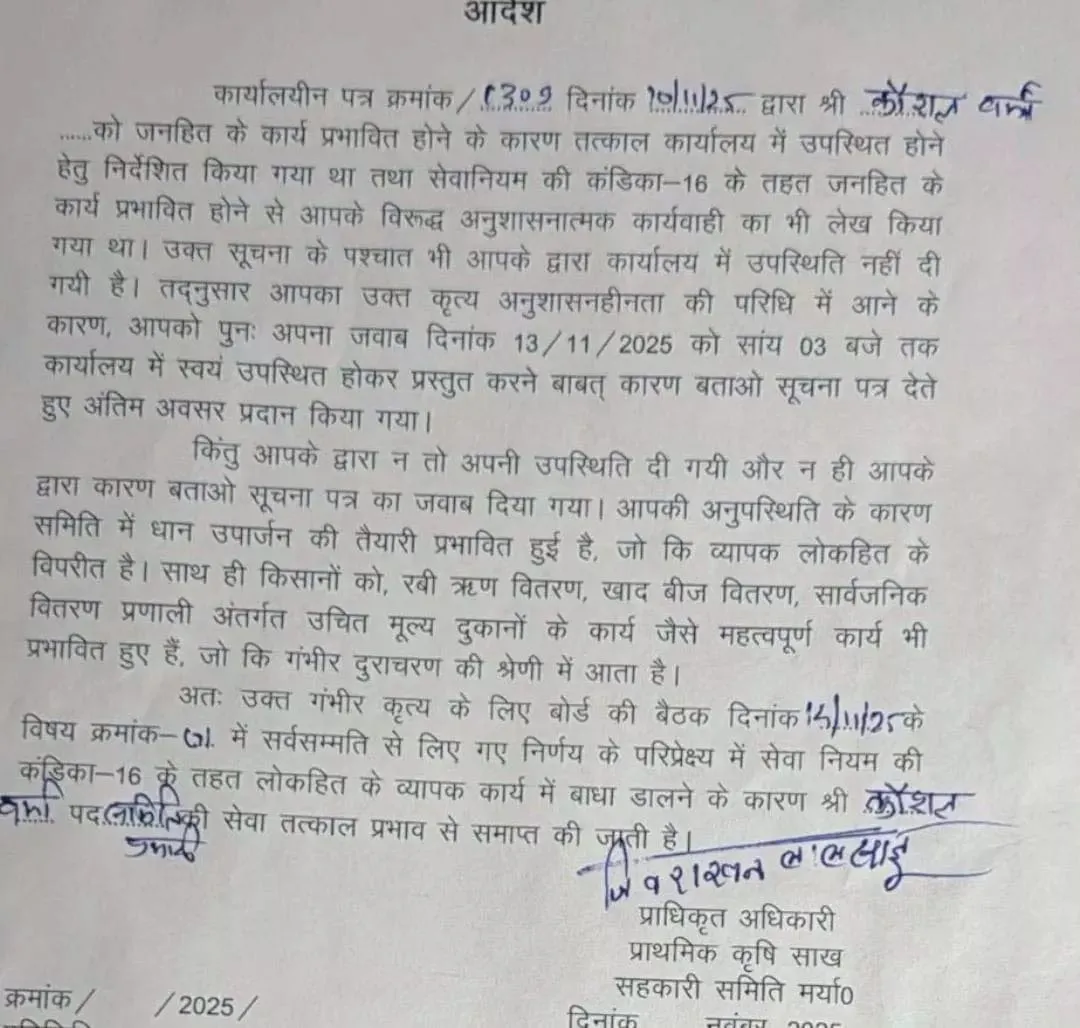 आदेश
कार्यालयीन पत्र क्रमांक/ 1309 दिनांक 10/11/25 द्वारा श्री कौशल वर्मा
......को जनहित के कार्य प्रभावित होने के कारण तत्काल कार्यालय में उपस्थित होने
हेतु निर्देशित किया गया था तथा सेवानियम की कंडिका–16 के तहत जनहित के
कार्य प्रभावित होने से आपके विरूद्ध अनुशासनात्मक कार्यवाही का भी लेख किया
गया था। उक्त सूचना के पश्चात भी आपके द्वारा कार्यालय में उपस्थिति नहीं दी
गयी है। तद्नुसार आपका उक्त कृत्य अनुशासनहीनता की परिधि में आने के
कारण, आपको पुनः अपना जवाब दिनांक 13/11/2025 को सांय 03 बजे तक
कार्यालय में स्वयं उपस्थित होकर प्रस्तुत करने बाबत् कारण बताओ सूचना पत्र देते
हुए अंतिम अवसर प्रदान किया गया।
किंतु आपके द्वारा न तो अपनी उपस्थिति दी गयी और न ही आपके
द्वारा कारण बताओ सूचना पत्र का जवाब दिया गया। आपकी अनुपस्थिति के कारण
समिति में धान उपार्जन की तैयारी प्रभावित हुई है, जो कि व्यापक लोकहित के
विपरीत है। साथ ही किसानों को, रबी ऋण वितरण, खाद बीज वितरण, सार्वजनिक
वितरण प्रणाली अंतर्गत उचित मूल्य दुकानों के कार्य जैसे महत्वपूर्ण कार्य भी
प्रभावित हुए हैं, जो कि गंभीर दुराचरण की श्रेणी में आता है।
अतः उक्त गंभीर कृत्य के लिए बोर्ड की बैठक दिनांक /11/25 के
विषय क्रमांक– 01 में सर्वसम्मति से लिए गए निर्णय के परिप्रेक्ष्य में सेवा नियम की
कंडिका–16 के तहत लोकहित के व्यापक कार्य में बाधा डालने के कारण श्री कौशल
वर्मा पद की सेवा तत्काल प्रभाव से समाप्त की जाती है।
प्राधिकृत अधिकारी
प्राथमिक कृषि साख
सहकारी समिति मर्या0
क्रमांक/ /2025/
दिनांक नवंबर 2025